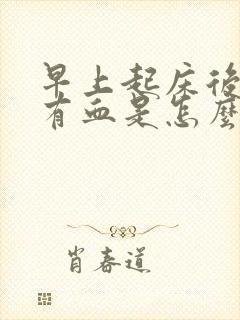 早上起床後
有血是怎麼
肖春道